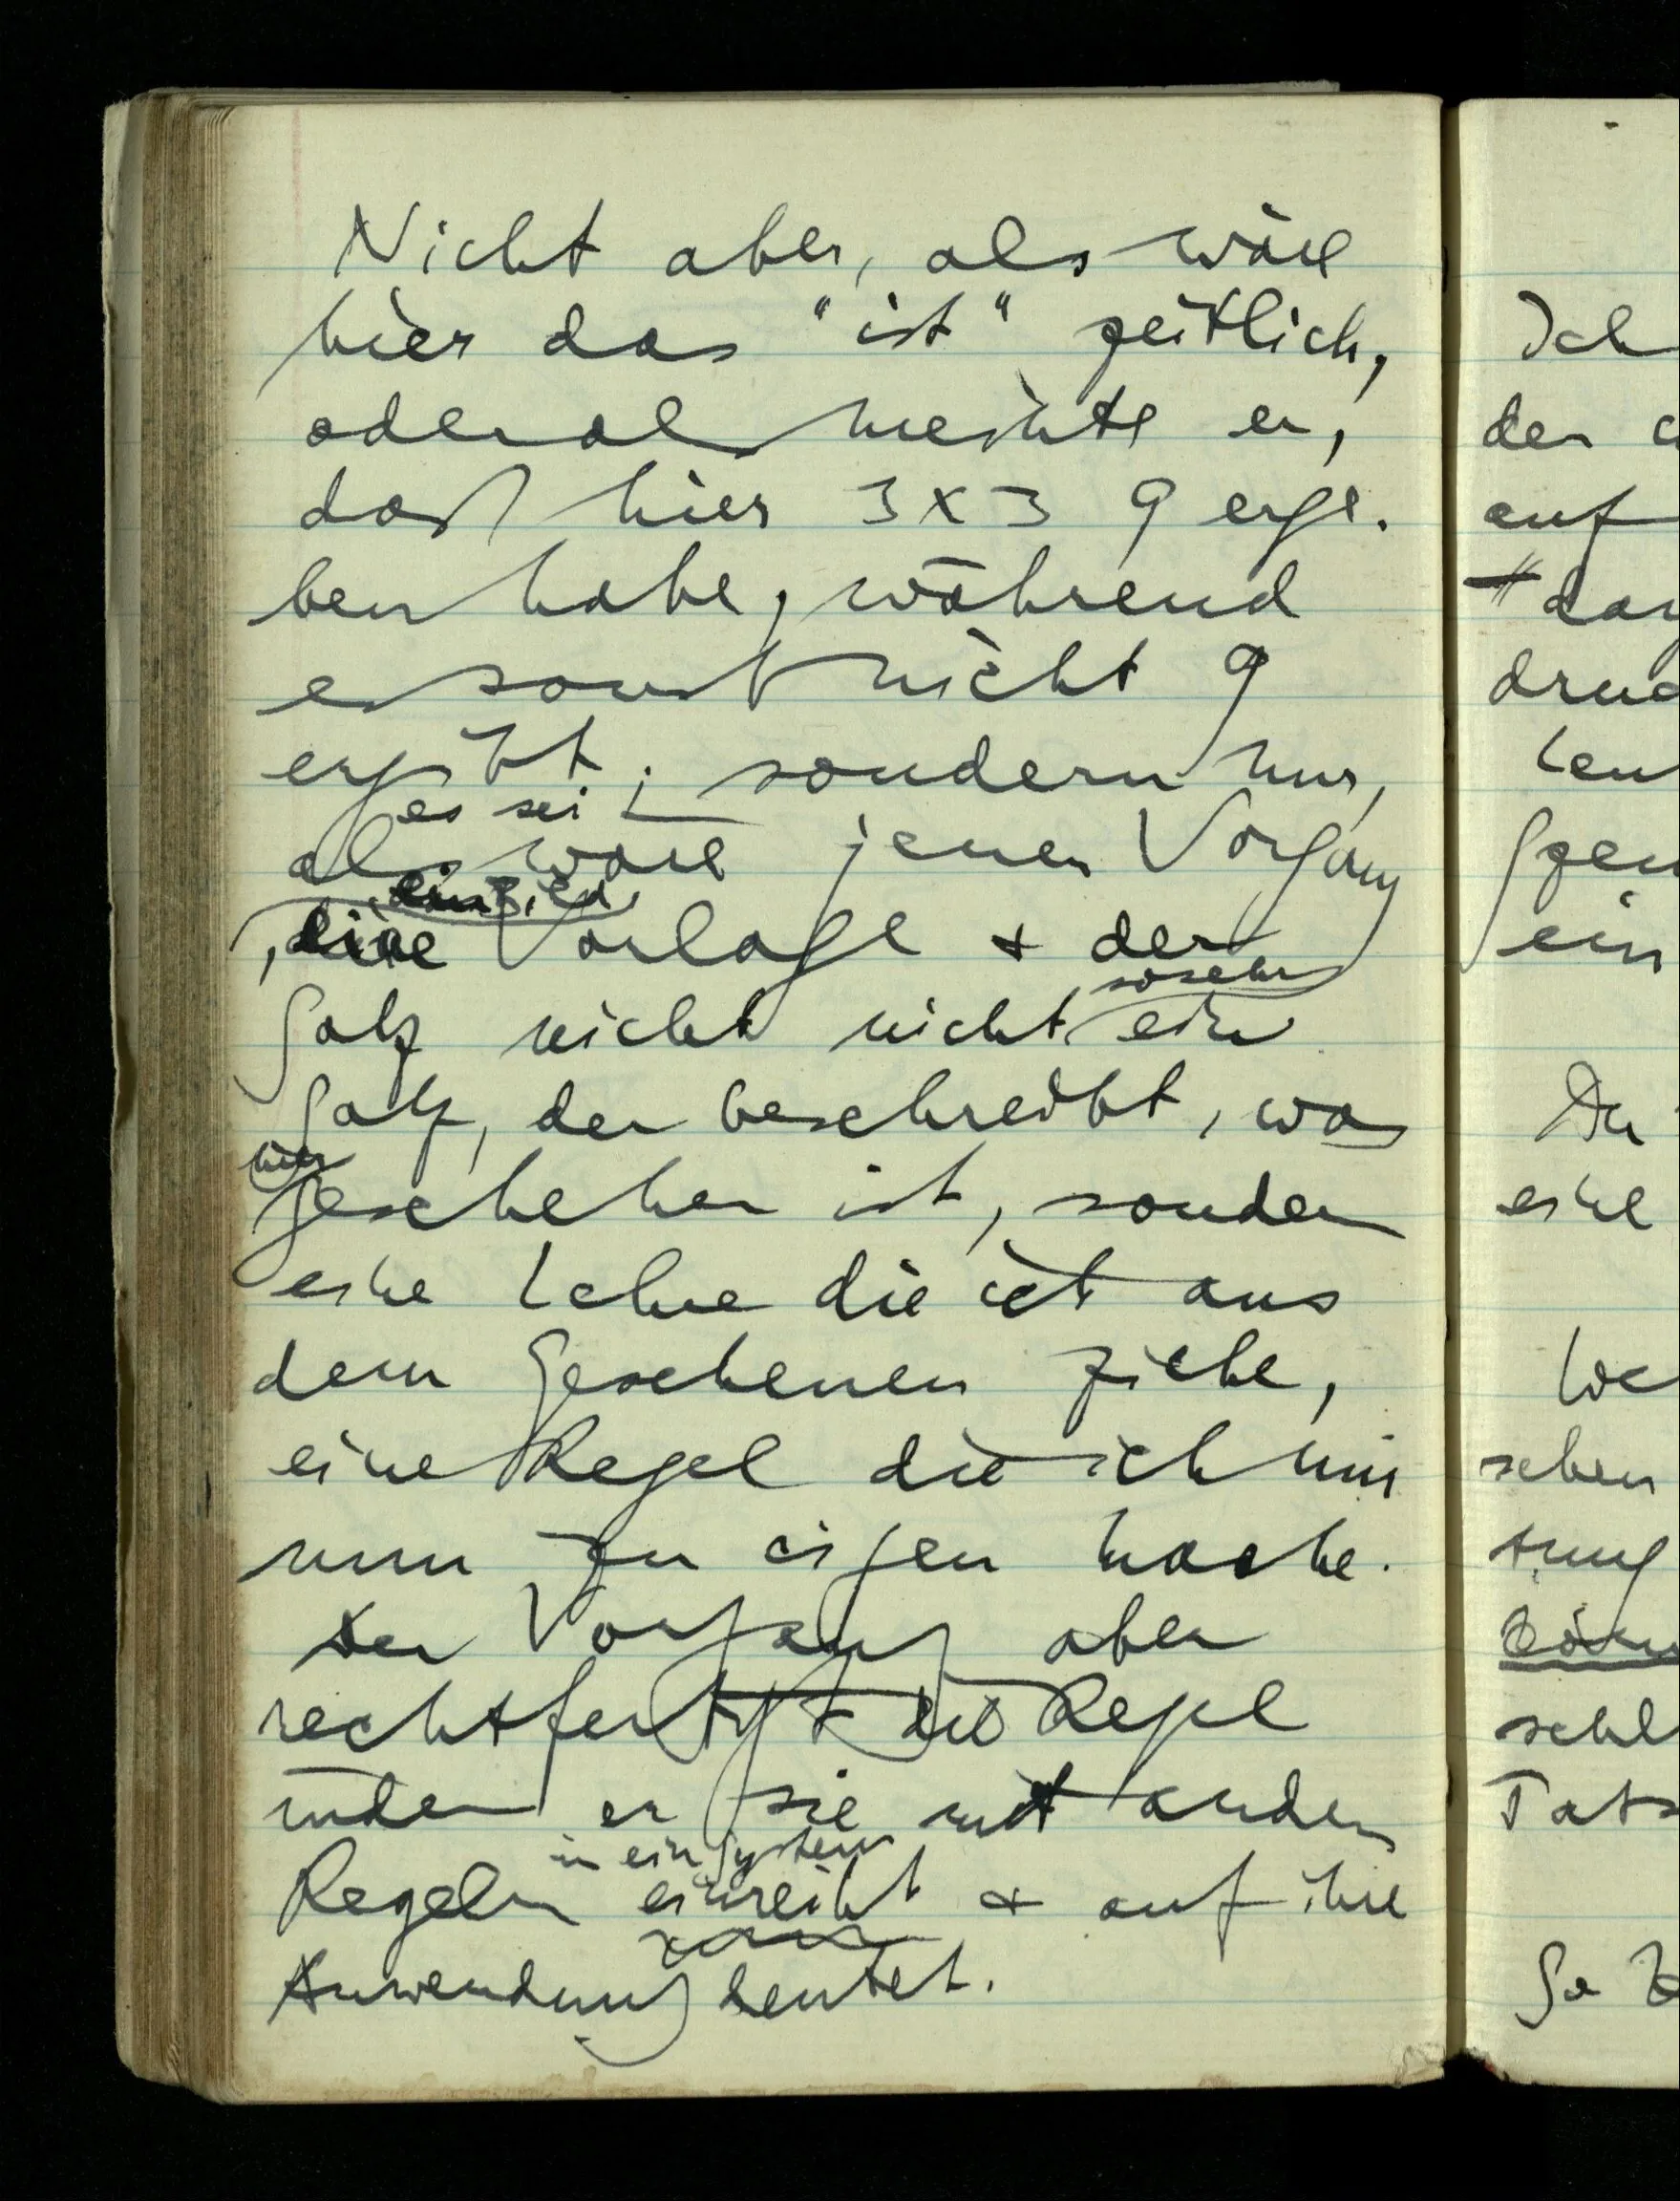 Nicht aber, als wäre
hier das "ist" zeitlich,
oder als meinte er,
daß hier 3 x 3 9 erge-
ben habe, während
es sonst nicht 9
ergibt; sondern nur,
es sei
als wäre jener Vorgang
ein Bild,
eine Vorlage & der
sosehr
Satz nicht nicht ein
Satz, der beschreibt, was
hier
geschehen ist, sondern
eine Lehre die ich aus
dem Geschehenen ziehe,
eine Regel die ich mir
nun zu eigen mache.
Der Vorgang aber
rechtfertigt die Regel
indem er sie mit anderen
in ein System
Regeln einreiht & auf ihre
Anwendung deutet.
Ich
der
auf
dar
druc
len
Gegen
ein
Du
eine
We
sehen
tung
schl
Tats
So